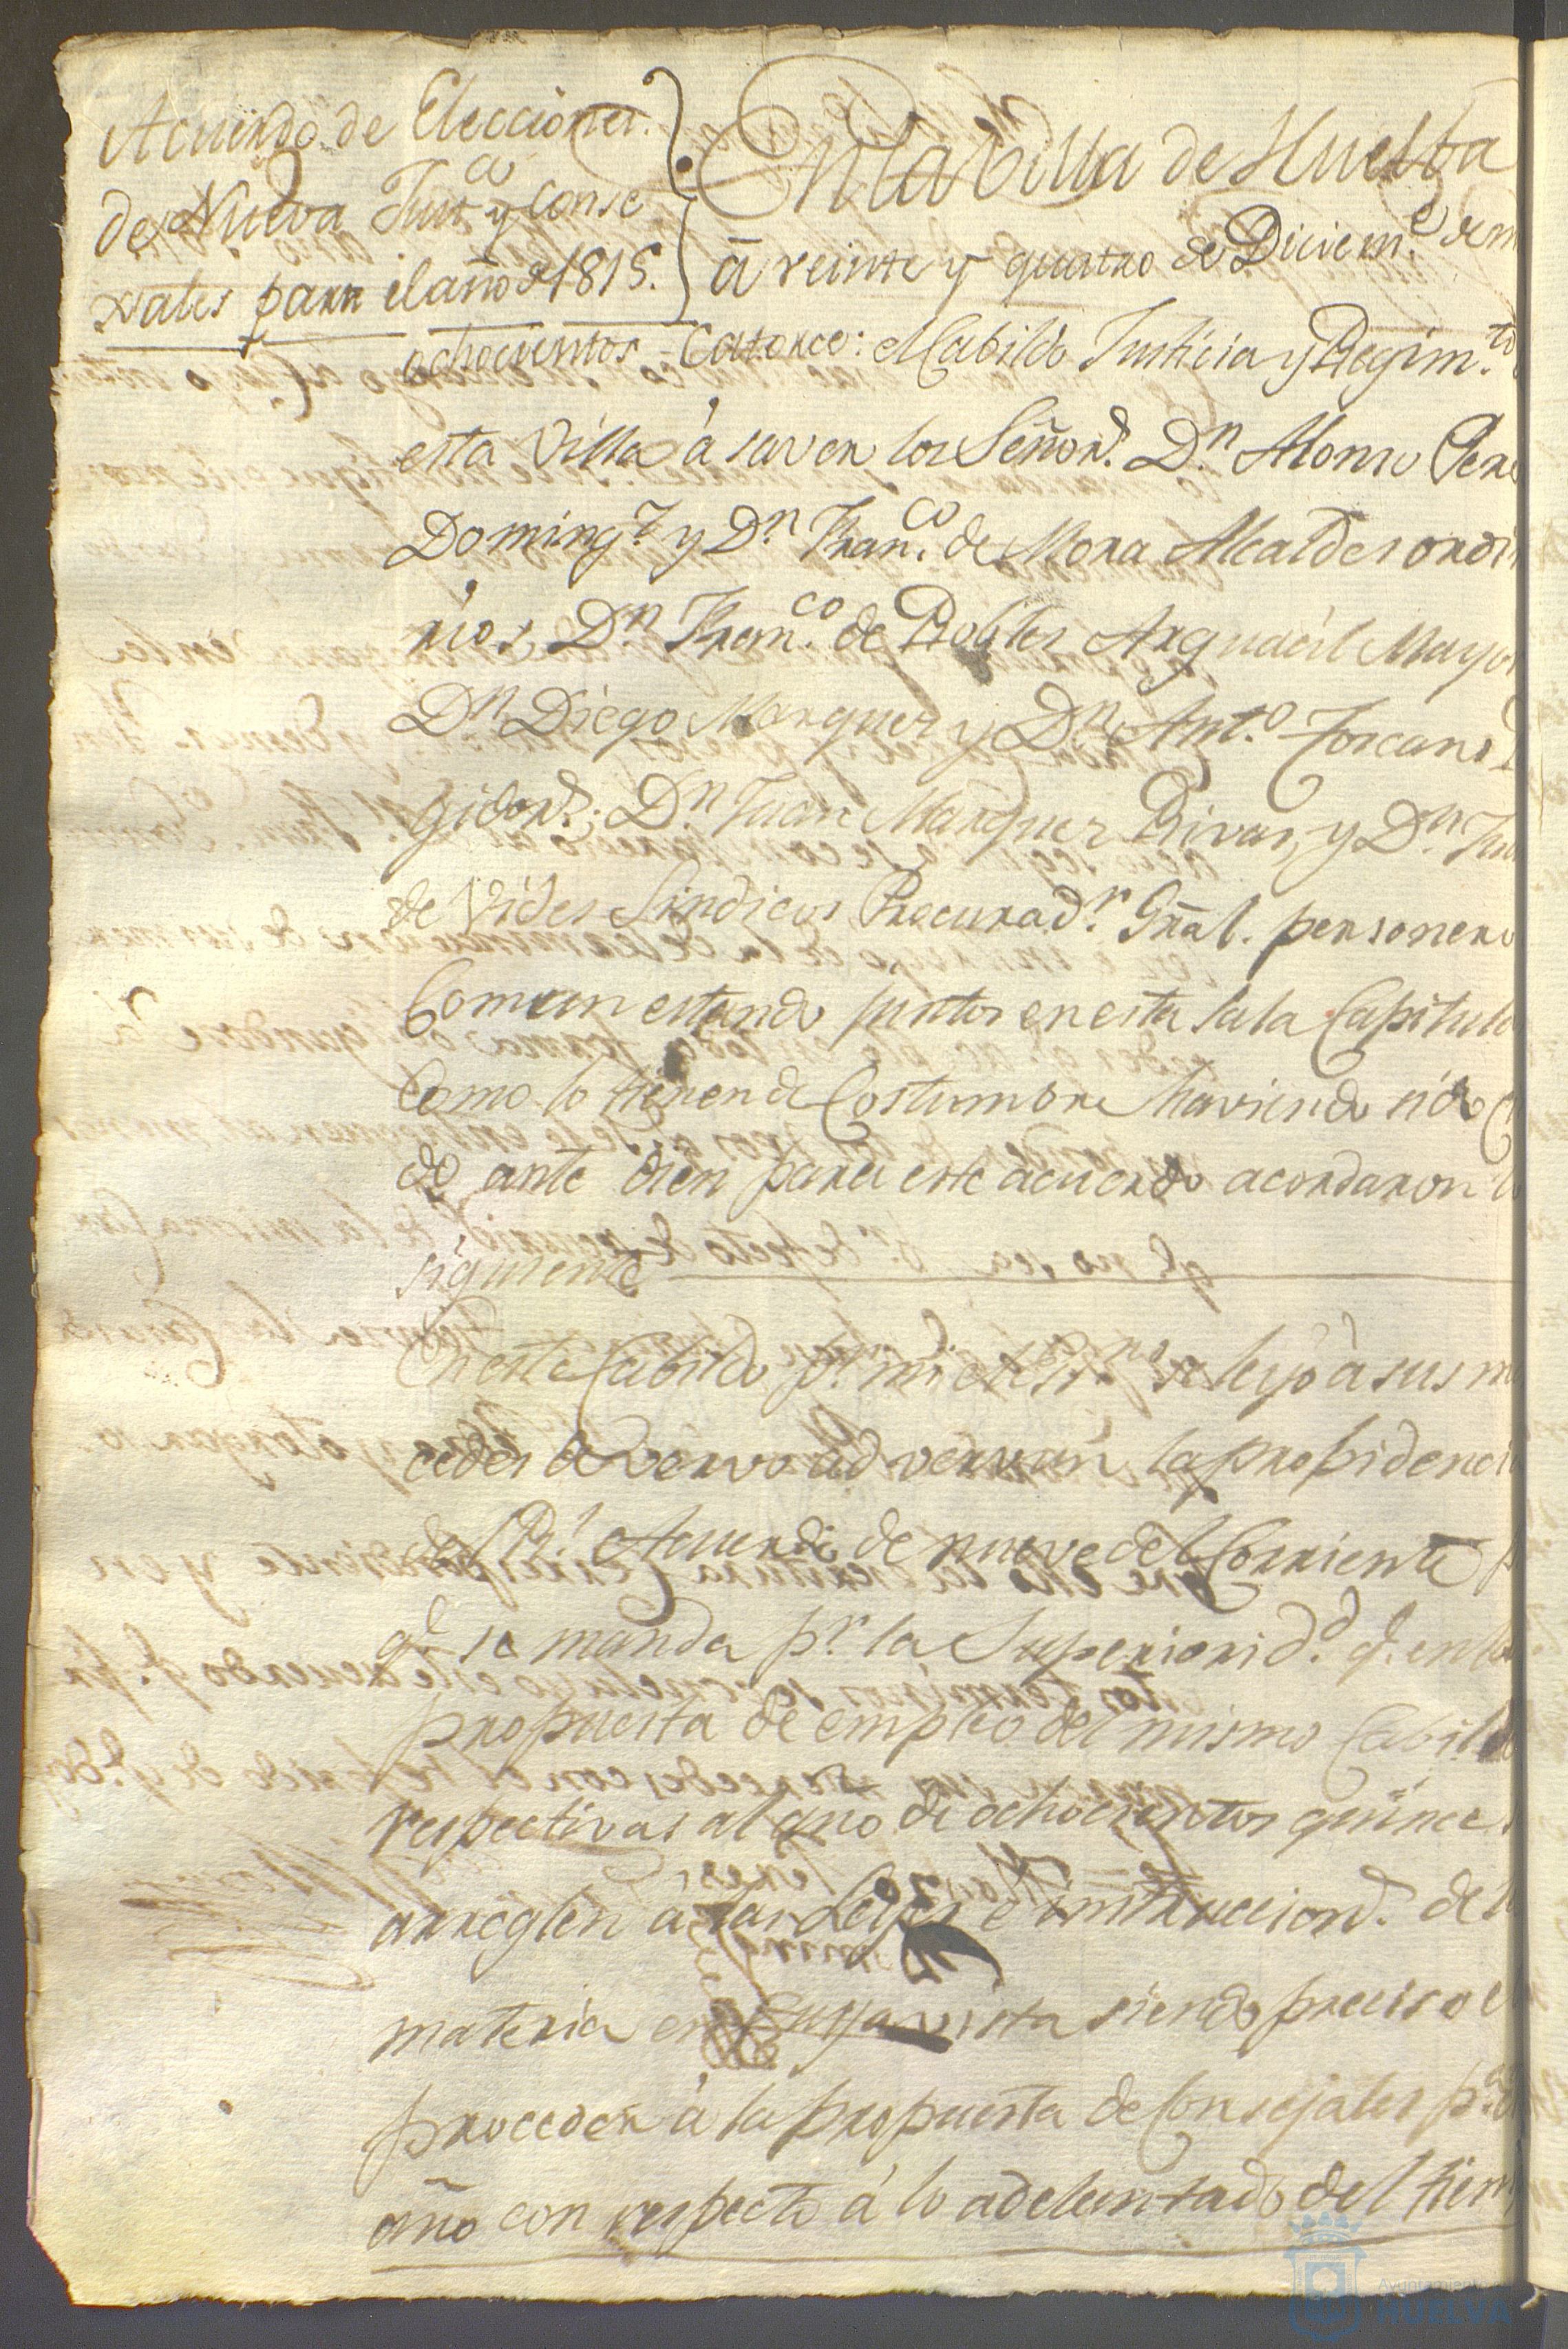 Acuerdo de Elecciones
de Nueva Justª y Conse
xales para el año d 1815.
En la Villa de Huelba
á veinte y quatro de Diciemᵉ de m
ochocientos Catorce: el Cabildo Justicia y Regimᵗᵒ
esta Villa á saver los Señorˢ Dⁿ Alonso Pere
Domingᶻ y Dⁿ Franᶜᵒ de Mora Alcaldes ordi
rios, Dⁿ Franᶜᵒ de Robles Arguacil Mayor
Dⁿ Diego Marquez y Dⁿ Antᵒ Toscano
gidorˢ; Dⁿ Juan Marquez Rivas, y Dⁿ Jua
de Vides Sindicos Procuradʳ Gral. personero
Comun estando juntos en esta sala Capitula
Como lo tienen de Costumbre haviendo sido
do ante diem para este acuerdo acordaron lo
siguiente
En este Cabildo pʳ mi el Esnᵒ se leyó á sus m
cedes de vervo ad vervun la probidenci
del Rˡ Acuerdo de nueve del Corriente p
qᵉ se manda pʳ la Superioridᵈ qᵉ en la
propuesta de empleo del mismo Cabildo
respectivas al año de ochocientos quince s
arreglen á las Leyes é instruccionˢ de la
materia en cuya vista siendo preciso e
proceder á la propuesta de Consejales pª
año con respecto á lo adelantado del tiem
Ayuntamiento
HUELVA